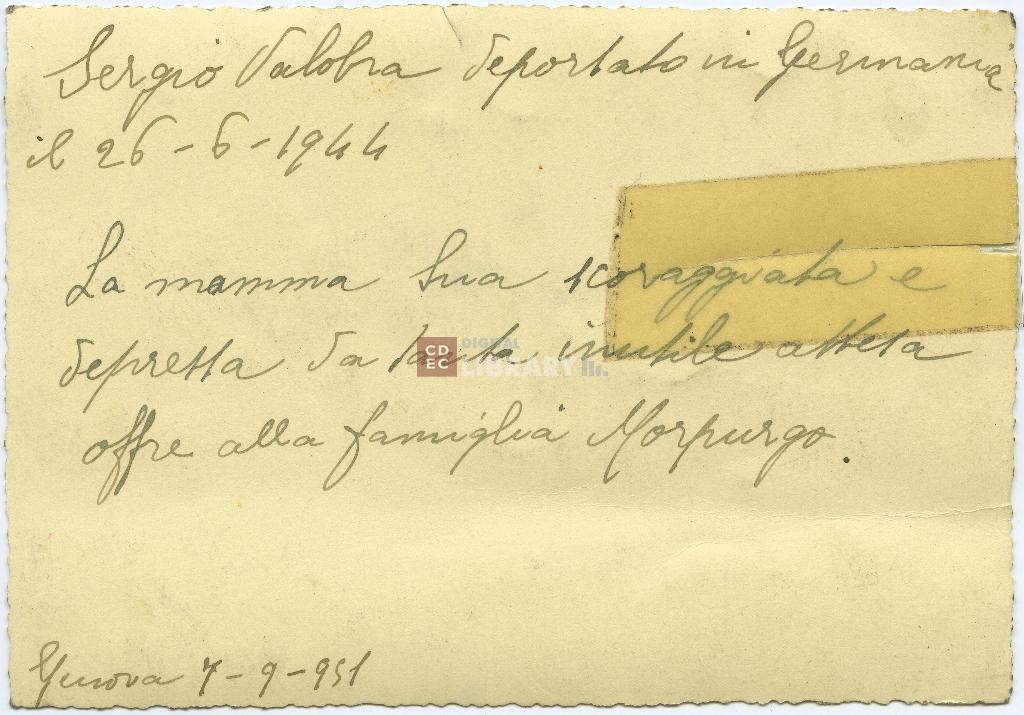 Sergio Valobra deportato in Germania
il 26-6-1944
La mamma sua scoraggiata e
depressa da tanta inutile attesa
offre alla famiglia Morpurgo.
CD
EC
DIGITAL
LIBRARY
Genova 7-9-951